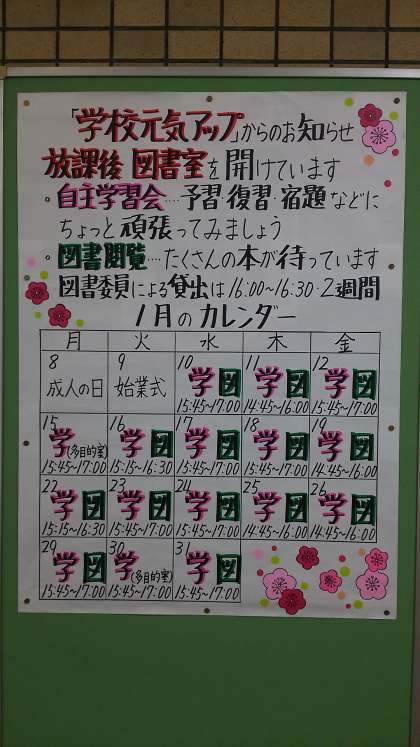 「学校元気アップ」からのお知らせ
放課後 図書室を開けています
・自主学習会‥‥予習・復習・宿題などに
ちょっと頑張ってみましょう
・図書閲覧‥‥たくさんの本が待っています
図書委員による貸出は16:00~16:30・2週間
1月のカレンダー
月 火 水 木 金
8 9 10 11 12
成人の日 始業式 学図 学図 学図
15:45~17:00 14:45~16:00 15:45~17:00
15 16 17 18 19
学(多目的室) 学図 学図 学図 学図
15:45~17:00 15:15~16:30 15:45~17:00 15:45~17:00 14:45~16:00
22 23 24 25 26
学図 学図 学図 学図 学図
15:15~16:30 15:45~17:00 15:45~17:00 14:45~16:00 14:45~16:00
29 30 31
学図 学(多目的室) 学図
15:45~17:00 15:45~17:00 15:45~17:00